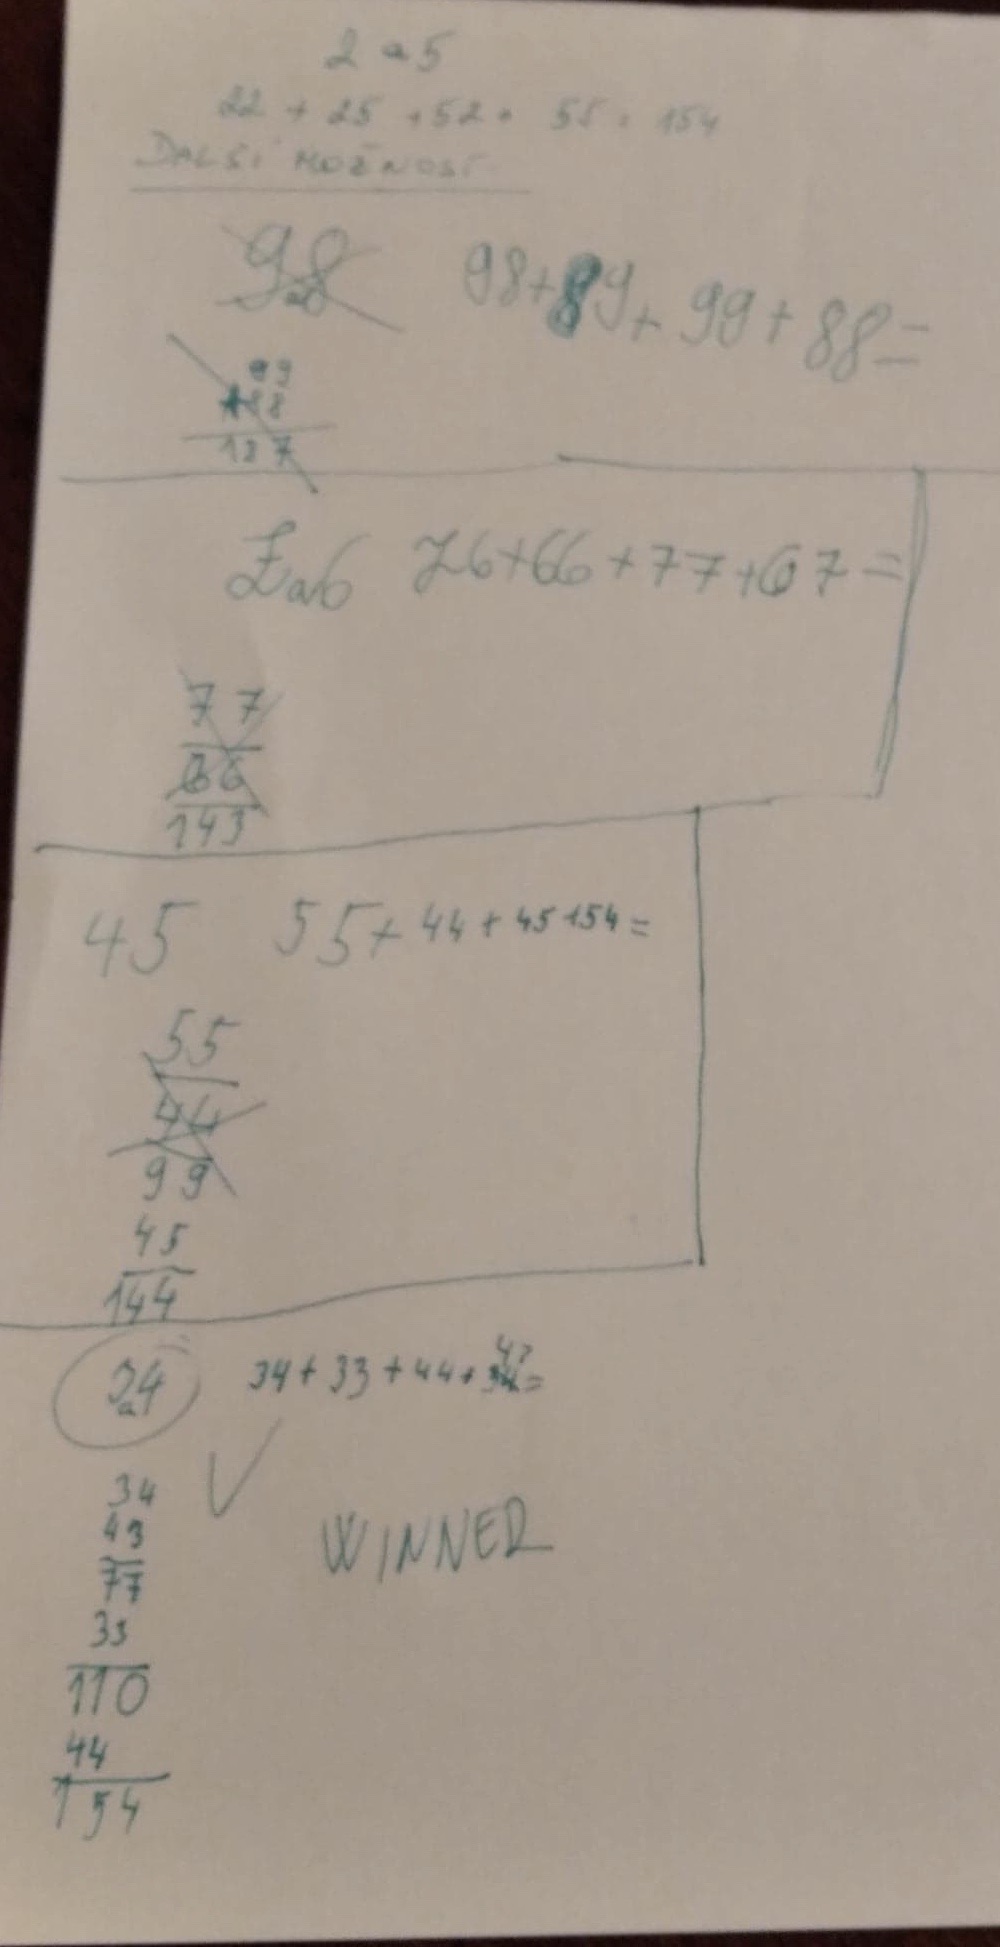 2 a 5
22 + 25 + 52 + 55 = 154
DALŠÍ MOŽNOST
9 a 8 98+89+99+88=
99
188
187
7 a 6 76+66+77+67=
77
66
143
45 55+44+45 154=
55
44
99
45
144
3 a 4 34+33+44+43=
34
43
77
33
WINNER
110
44
154